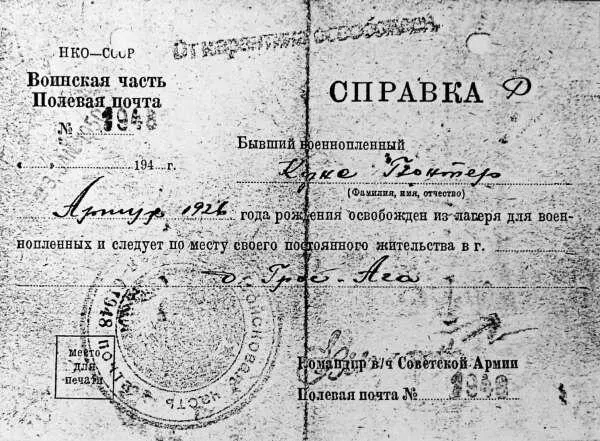 От карантина освобожден
НКО—СССР
Воинская часть
Полевая почта
№ 1948
« » 194 г.
СПРАВКА
Бывший военнопленный
Гюнтер
(Фамилия, имя, отчество)
Артур 1926 года рождения освобожден из лагеря для воен-
нопленных и следует по месту своего постоянного жительства в г.
д. Грос-
место
для
печати
Командир в/ч Советской Армии
Полевая почта № 1948